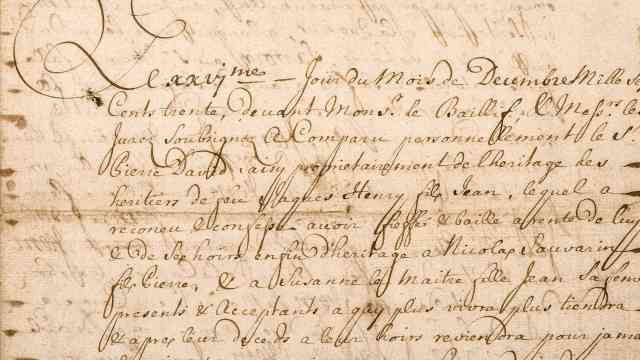 Le xxvjme — Jour du Mois de Decembre Mille s
Cents trente, devant Monsr. le Baillif, & Messrs. les
Jures Soubsignez Est Comparu personnellement le Sr.
Pierre David proprietairement de l'heritage des
heritiers de feu Jaques Henry fils Jean, lequel a
reconeu & confessé avoir fieffé & baillé a rente de luy
& de Ses hoirs en fin d'heritage a Nicolas Sauvarin
fils Pierre, & a Susanne le Maitre fille Jean Sa femme
presents & Acceptants a qui plus vivra plus tiendra
& apres leur deceds a leur hoirs reviendra pour jama